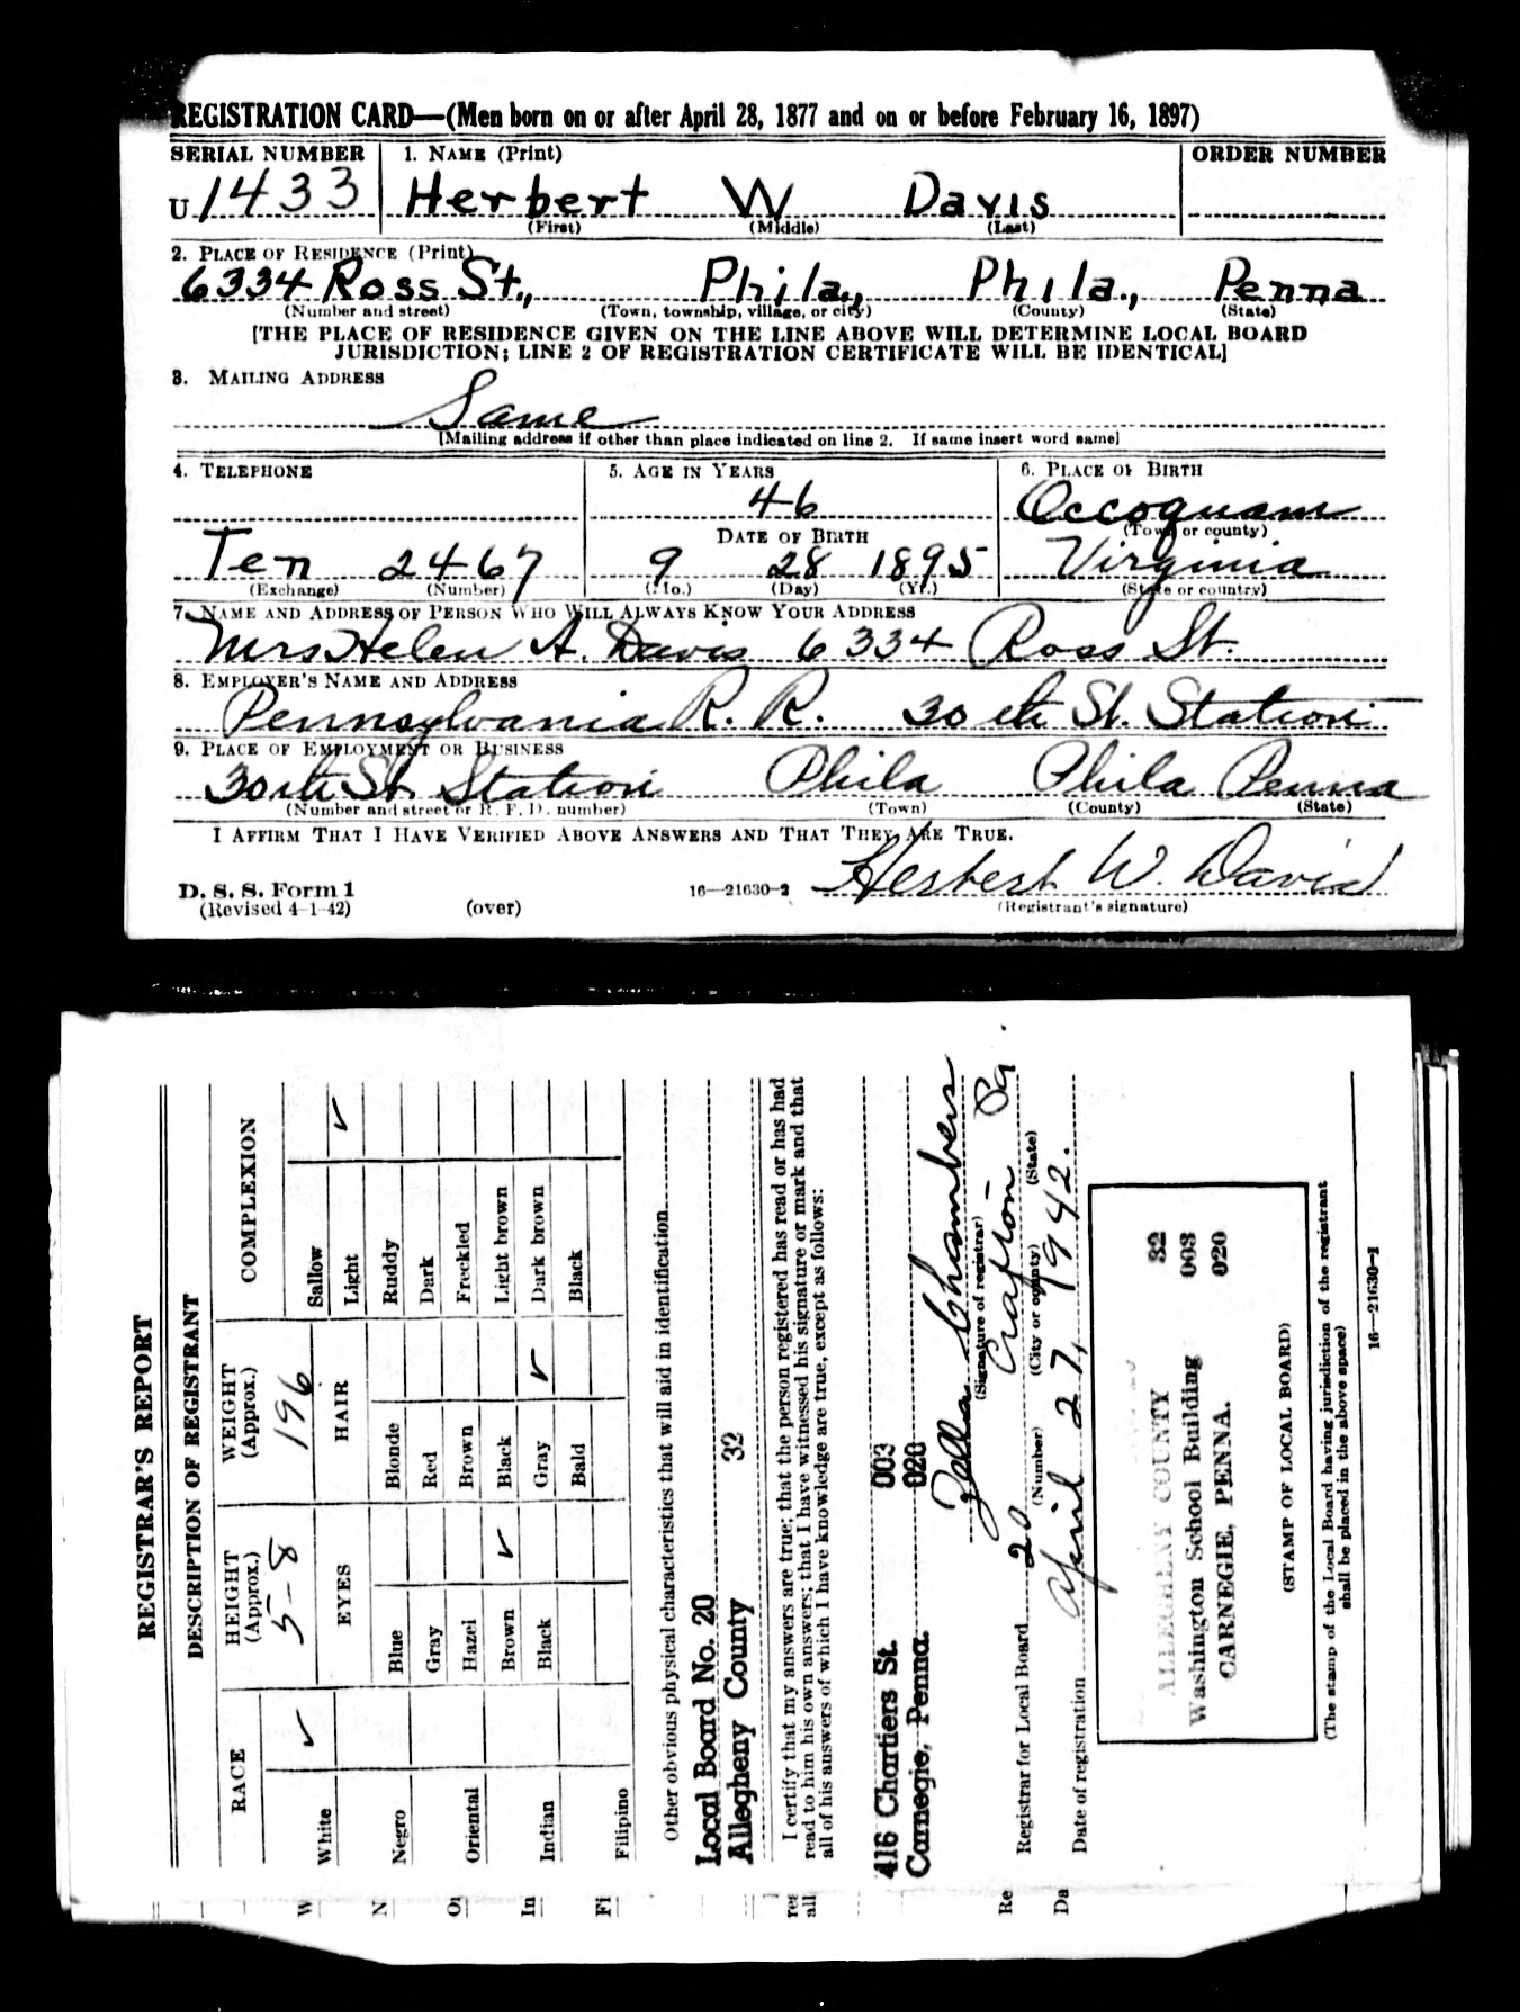 REGISTRATION CARD—(Men born on or after April 28, 1877 and on or before February 16, 1897)
SERIAL NUMBER 1. NAME (Print) ORDER NUMBER
U 1433 Herbert W Davis
(First) (Middle) (Last)
2. PLACE OF RESIDENCE (Print)
6334 Ross St., Phila., Phila., Penna
(Number and street) (Town, township, village, or city) (County) (State)
[THE PLACE OF RESIDENCE GIVEN ON THE LINE ABOVE WILL DETERMINE LOCAL BOARD
JURISDICTION; LINE 2 OF REGISTRATION CERTIFICATE WILL BE IDENTICAL]
3. MAILING ADDRESS
Same
[Mailing address if other than place indicated on line 2. If same insert word same]
4. TELEPHONE 5. AGE IN YEARS 6. PLACE OF BIRTH
46 Occoquam
DATE OF BIRTH (Town or county)
Ten 2467 9 28 1895 Virginia
(Exchange) (Number) (Mo.) (Day) (Yr.) (State or country)
7. NAME AND ADDRESS OF PERSON WHO WILL ALWAYS KNOW YOUR ADDRESS
Mrs Helen A. Davis 6334 Ross St.
8. EMPLOYER'S NAME AND ADDRESS
Pennsylvania R. R. 30th St. Station
9. PLACE OF EMPLOYMENT OR BUSINESS
30th St. Station Phila Phila Penna
(Number and street or R. F. D. number) (Town) (County) (State)
I AFFIRM THAT I HAVE VERIFIED ABOVE ANSWERS AND THAT THEY ARE TRUE.
Herbert W. Davis
D. S. S. Form 1
(Revised 4-1-42) (over) 16—21630-2 (Registrant's signature)
REGISTRAR'S REPORT
DESCRIPTION OF REGISTRANT
RACE HEIGHT (Approx.) WEIGHT (Approx.) COMPLEXION
5-8 196
White ✓ EYES HAIR Sallow
Light ✓
Negro Blue Blonde Ruddy
Gray Red Dark
Oriental Hazel Brown Freckled
Brown ✓ Black Light brown
Indian Black Gray ✓ Dark brown
Bald Black
Filipino
Other obvious physical characteristics that will aid in identification
Local Board No. 20
Allegheny County 32
I certify that my answers are true; that the person registered has read or has had
read to him his own answers; that I have witnessed his signature or mark and that
all of his answers of which I have knowledge are true, except as follows:
416 Chartiers St. 003
Carnegie, Penna. 020
Zella Chambers
(Signature of registrar)
Registrar for Local Board 20 Crafton Pa
(Number) (City or county) (State)
Date of registration April 27, 1942.
ALLEGHENY COUNTY 32
Washington School Building 003
CARNEGIE, PENNA. 020
(STAMP OF LOCAL BOARD)
(The stamp of the Local Board having jurisdiction of the registrant
shall be placed in the above space)
16—21630-1